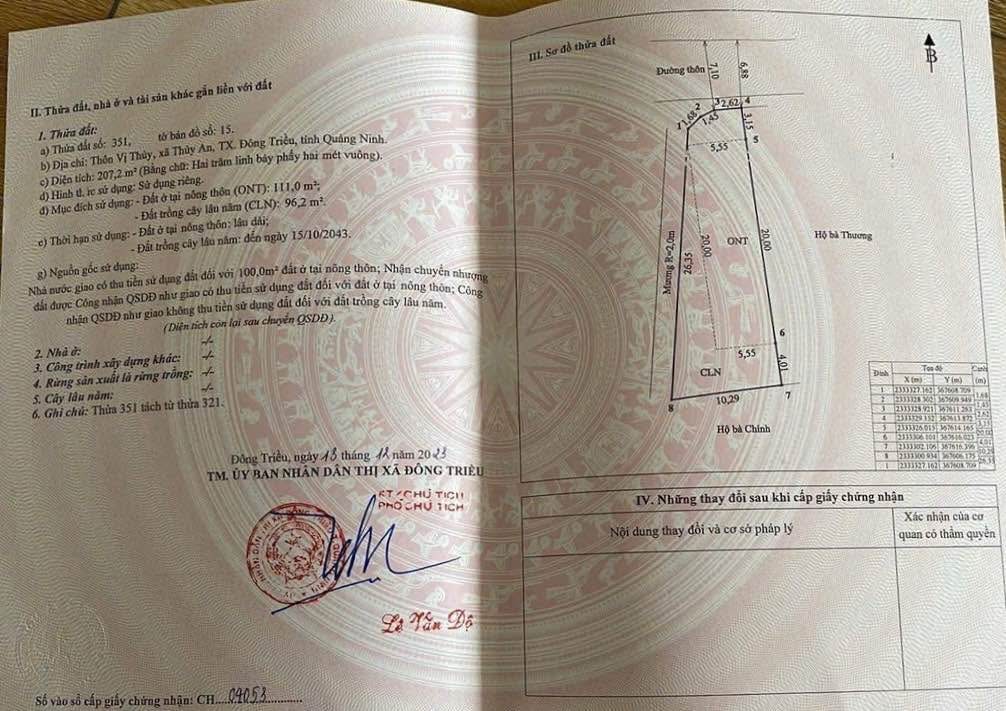 II. Thửa đất, nhà ở và tài sản khác gắn liền với đất
1. Thửa đất:
a) Thửa đất số: 351, tờ bản đồ số: 15.
b) Địa chỉ: Thôn Vị Thủy, xã Thủy An, TX. Đông Triều, tỉnh Quảng Ninh.
c) Diện tích: 207,2 m² (Bằng chữ: Hai trăm linh bảy phẩy hai mét vuông).
d) Hình thức sử dụng: Sử dụng riêng.
đ) Mục đích sử dụng: - Đất ở tại nông thôn (ONT): 111,0 m²;
- Đất trồng cây lâu năm (CLN): 96,2 m².
e) Thời hạn sử dụng: - Đất ở tại nông thôn: lâu dài;
- Đất trồng cây lâu năm: đến ngày 15/10/2043.
g) Nguồn gốc sử dụng:
Nhà nước giao có thu tiền sử dụng đất đối với 100,0m² đất ở tại nông thôn; Nhận chuyển nhượng
đất được Công nhận QSDĐ như giao có thu tiền sử dụng đất đối với đất ở tại nông thôn; Công
nhận QSDĐ như giao không thu tiền sử dụng đất đối với đất trồng cây lâu năm.
(Diện tích còn lại sau chuyển QSDĐ).
2. Nhà ở: -/-
3. Công trình xây dựng khác: -/-
4. Rừng sản xuất là rừng trồng: -/-
5. Cây lâu năm: -/-
6. Ghi chú: Thửa 351 tách từ thửa 321.
Đông Triều, ngày 13 tháng 12 năm 2023
TM. ỦY BAN NHÂN DÂN THỊ XÃ ĐÔNG TRIỀU
KT. CHỦ TỊCH
PHÓ CHỦ TỊCH
Lê Văn Độ
Số vào sổ cấp giấy chứng nhận: CH....04053
III. Sơ đồ thửa đất
B
Đường thôn
7,10
6,88
1
1,68
2
1,45
3
2,62
4
3,15
5
5,55
Mương R=2,0m
26,35
20,00
ONT
20,00
Hộ bà Thương
6
5,55
4,01
CLN
8
10,29
7
Hộ bà Chính
Đỉnh Tọa độ Cạnh
X (m) Y (m) (m)
1 2333327.162 367608.709
1,68
2 2333328.302 367609.949
1,45
3 2333328.921 367611.263
2,62
4 2333329.152 367613.872
3,15
5 2333326.015 367614.165
20,00
6 2333306.101 367616.023
4,01
7 2333302.106 367616.396
10,29
8 2333300.934 367606.175
26,35
1 2333327.162 367608.709
IV. Những thay đổi sau khi cấp giấy chứng nhận
Nội dung thay đổi và cơ sở pháp lý
Xác nhận của cơ
quan có thẩm quyền